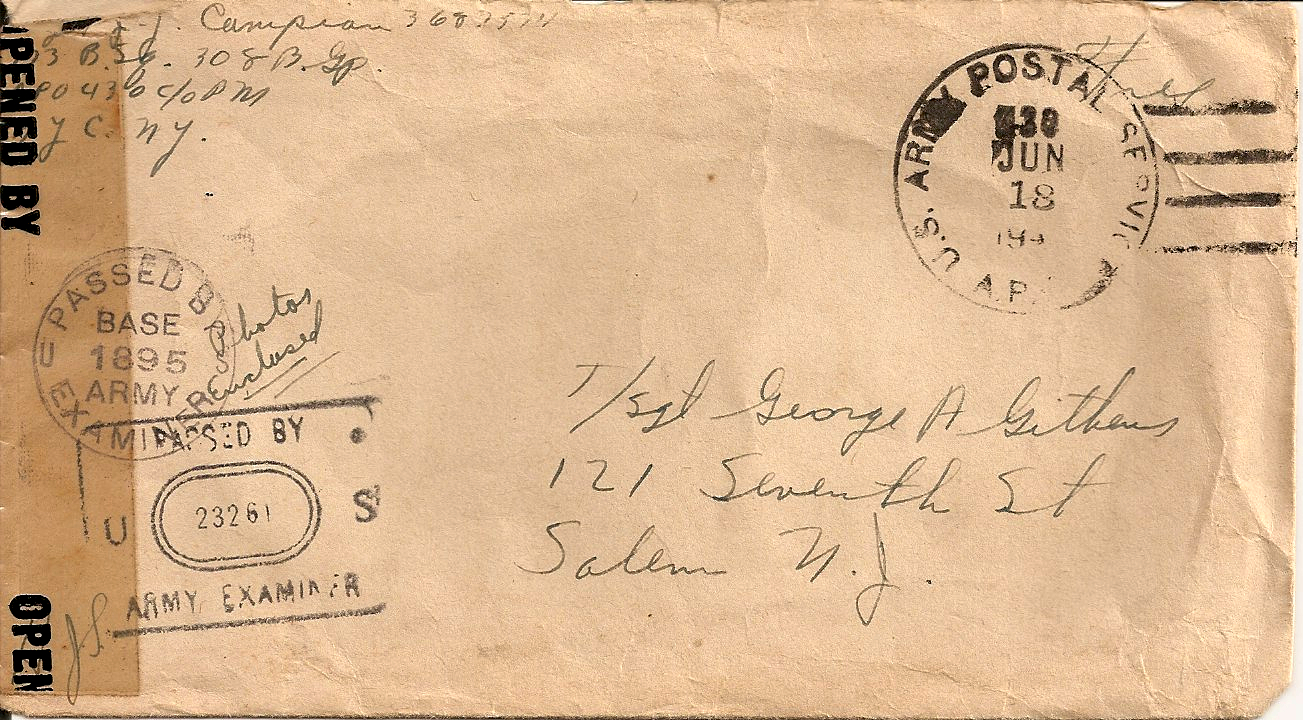 J. Campion
B. Sq. 308 B. Gp.
c/o PM
N.Y.
OPENED BY
U.S. ARMY POSTAL SERVICE
A.P.
JUN
18
194
Free
PASSED BY
BASE
1895
ARMY
U S
EXAMINER
Photos
Enclosed
PASSED BY
U 23261 S
ARMY EXAMINER
J.S.
OPEN
T/sgt George A Githens
121 Seventh St
Salem N.J.